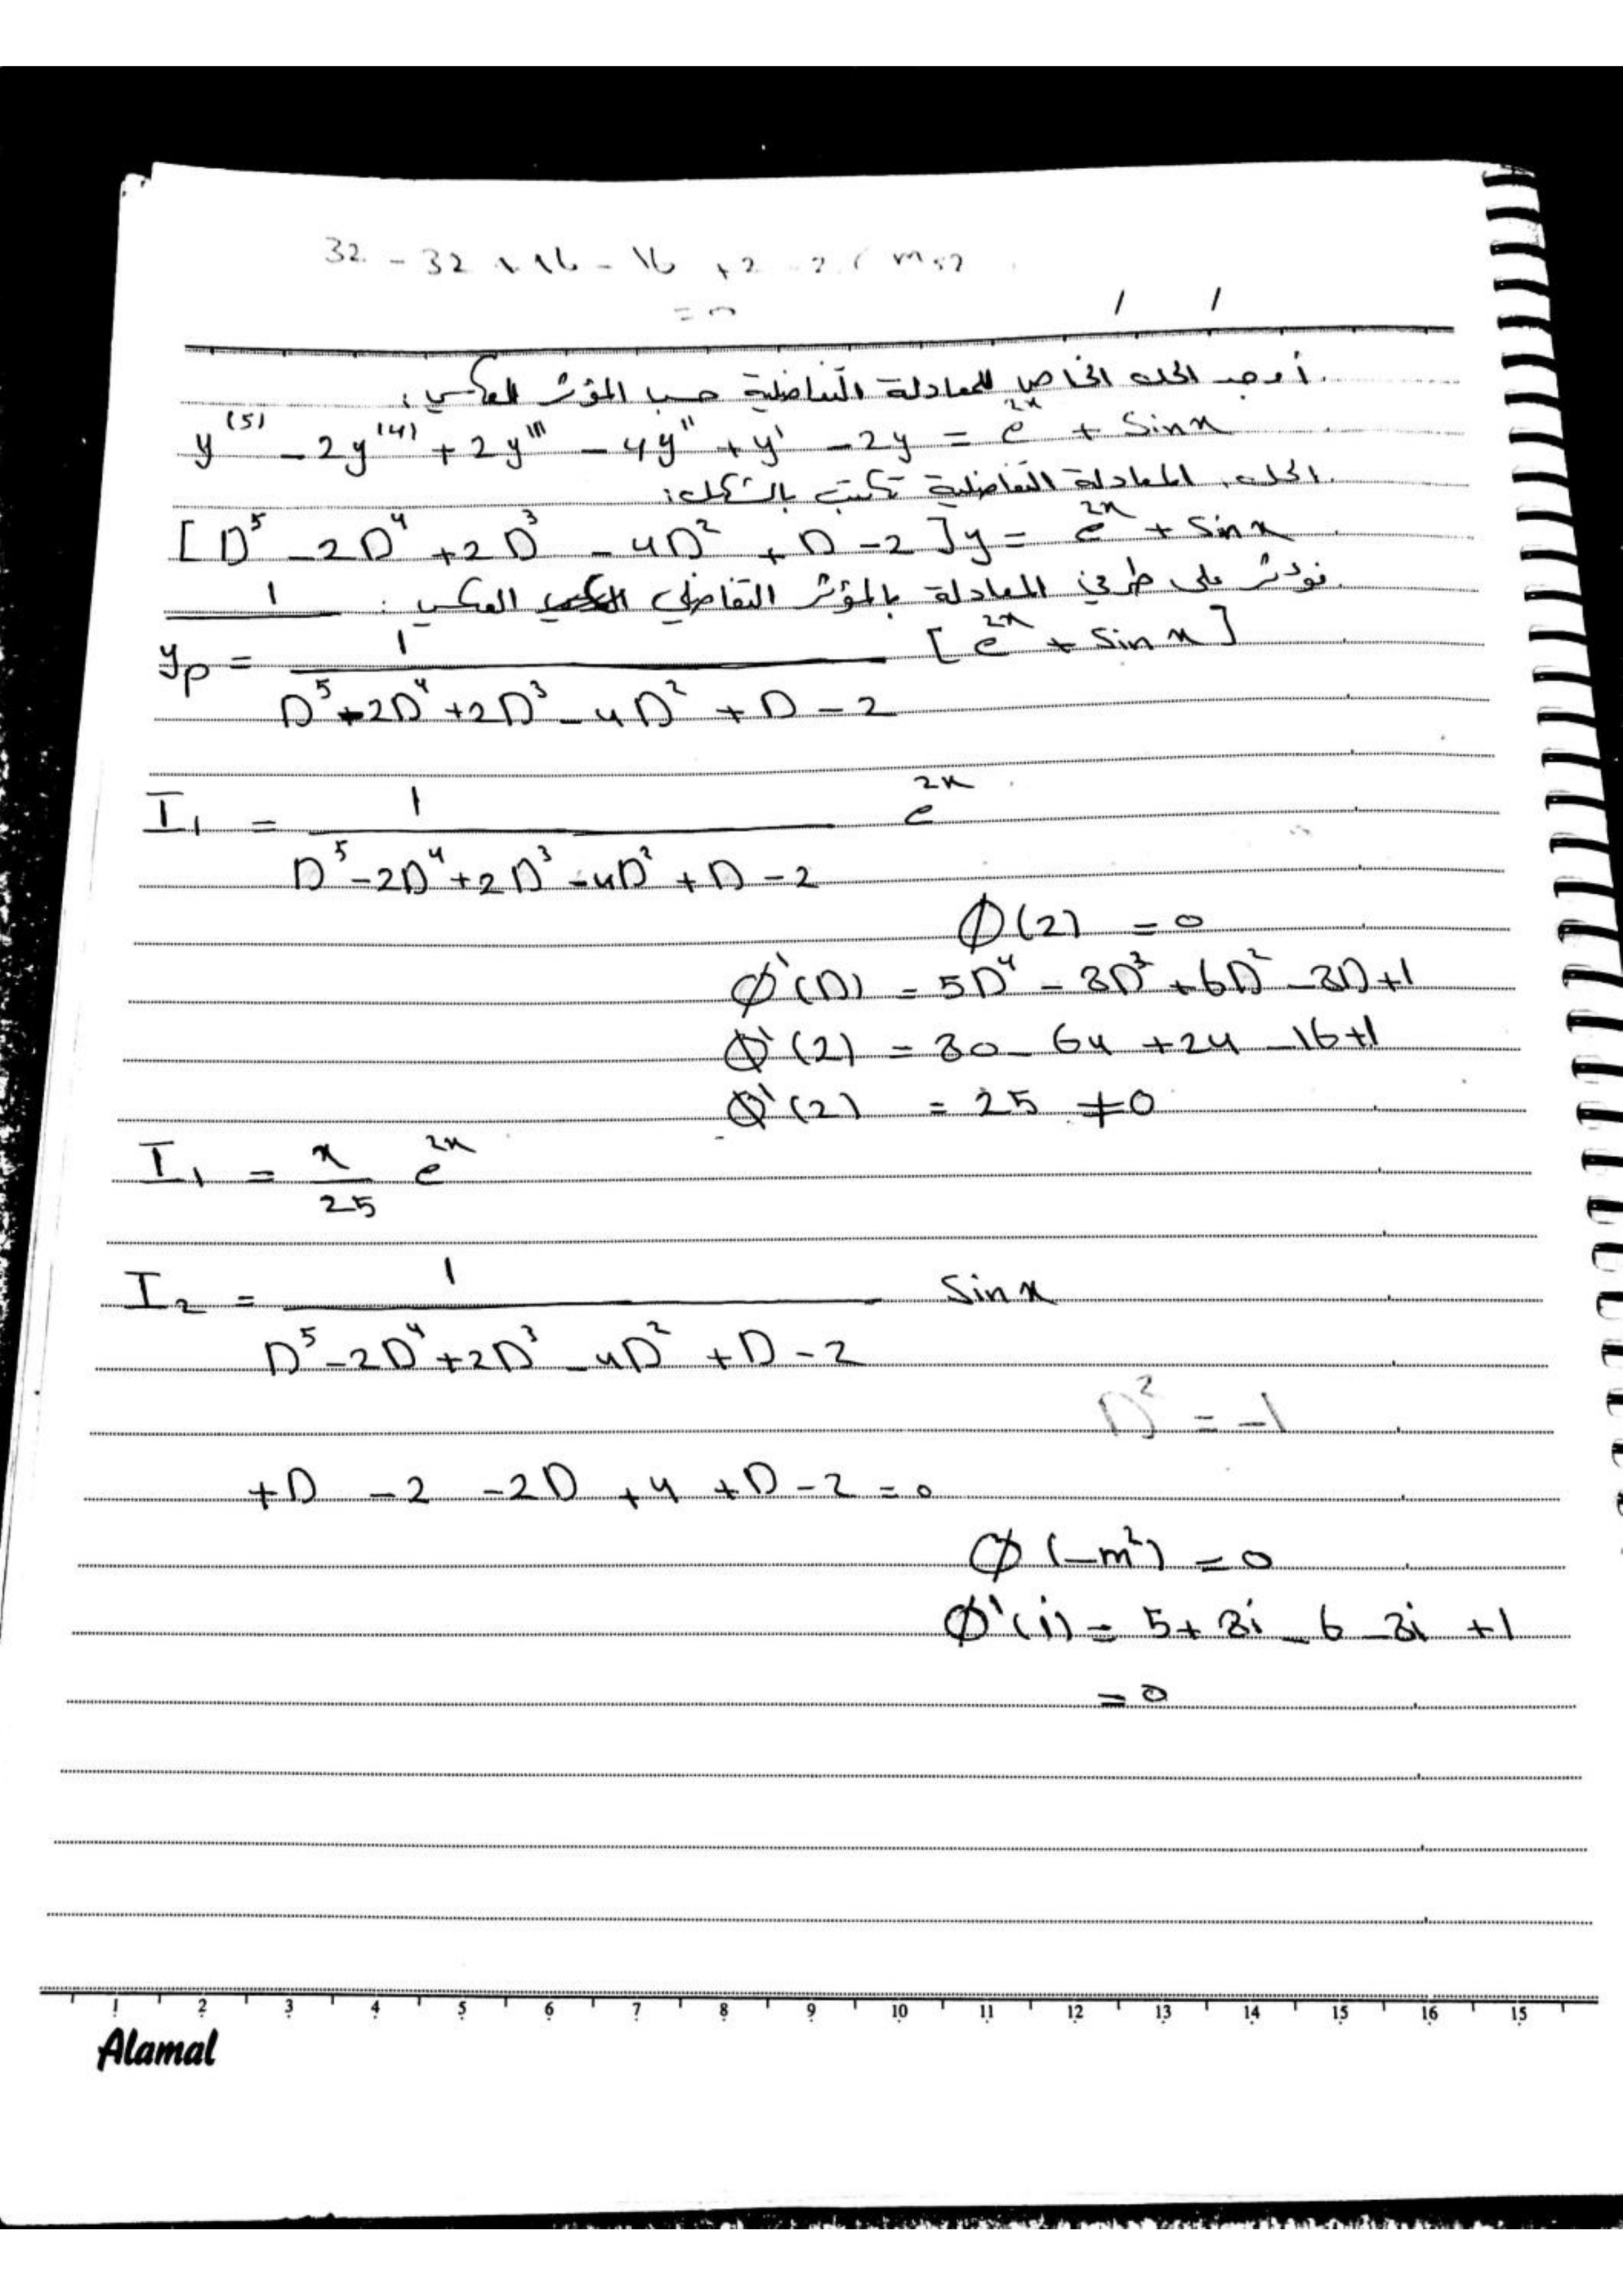 32 - 32 + 16 - 16 + 2 - 2 ( m=2
= 0
/ /
أوجد الحل الخاص للمعادلة التفاضلية حسب المؤثر العكسي:
y⁽⁵⁾ - 2y⁽⁴⁾ + 2y''' - 4y'' + y' - 2y = e²ˣ + Sinx
الحل. المعادلة التفاضلية تكتب بالشكل:
[D⁵ - 2D⁴ + 2D³ - 4D² + D - 2]y = e²ˣ + Sinx
نؤثر على طرفي المعادلة بالمؤثر التفاضلي العكسي: 1
yp = 1 / (D⁵ - 2D⁴ + 2D³ - 4D² + D - 2) [e²ˣ + Sinx]
I₁ = 1 / (D⁵ - 2D⁴ + 2D³ - 4D² + D - 2) e²ˣ
Ø(2) = 0
Ø'(D) = 5D⁴ - 8D³ + 6D² - 8D + 1
Ø'(2) = 80 - 64 + 24 - 16 + 1
Ø'(2) = 25 ≠ 0
I₁ = x/25 e²ˣ
I₂ = 1 / (D⁵ - 2D⁴ + 2D³ - 4D² + D - 2) Sinx
D² = -1
+D - 2 - 2D + 4 + D - 2 = 0
Ø(-m²) = 0
Ø'(i) = 5 + 8i - 6 - 8i + 1
= 0
1 2 3 4 5 6 7 8 9 10 11 12 13 14 15 16 15
Alamal